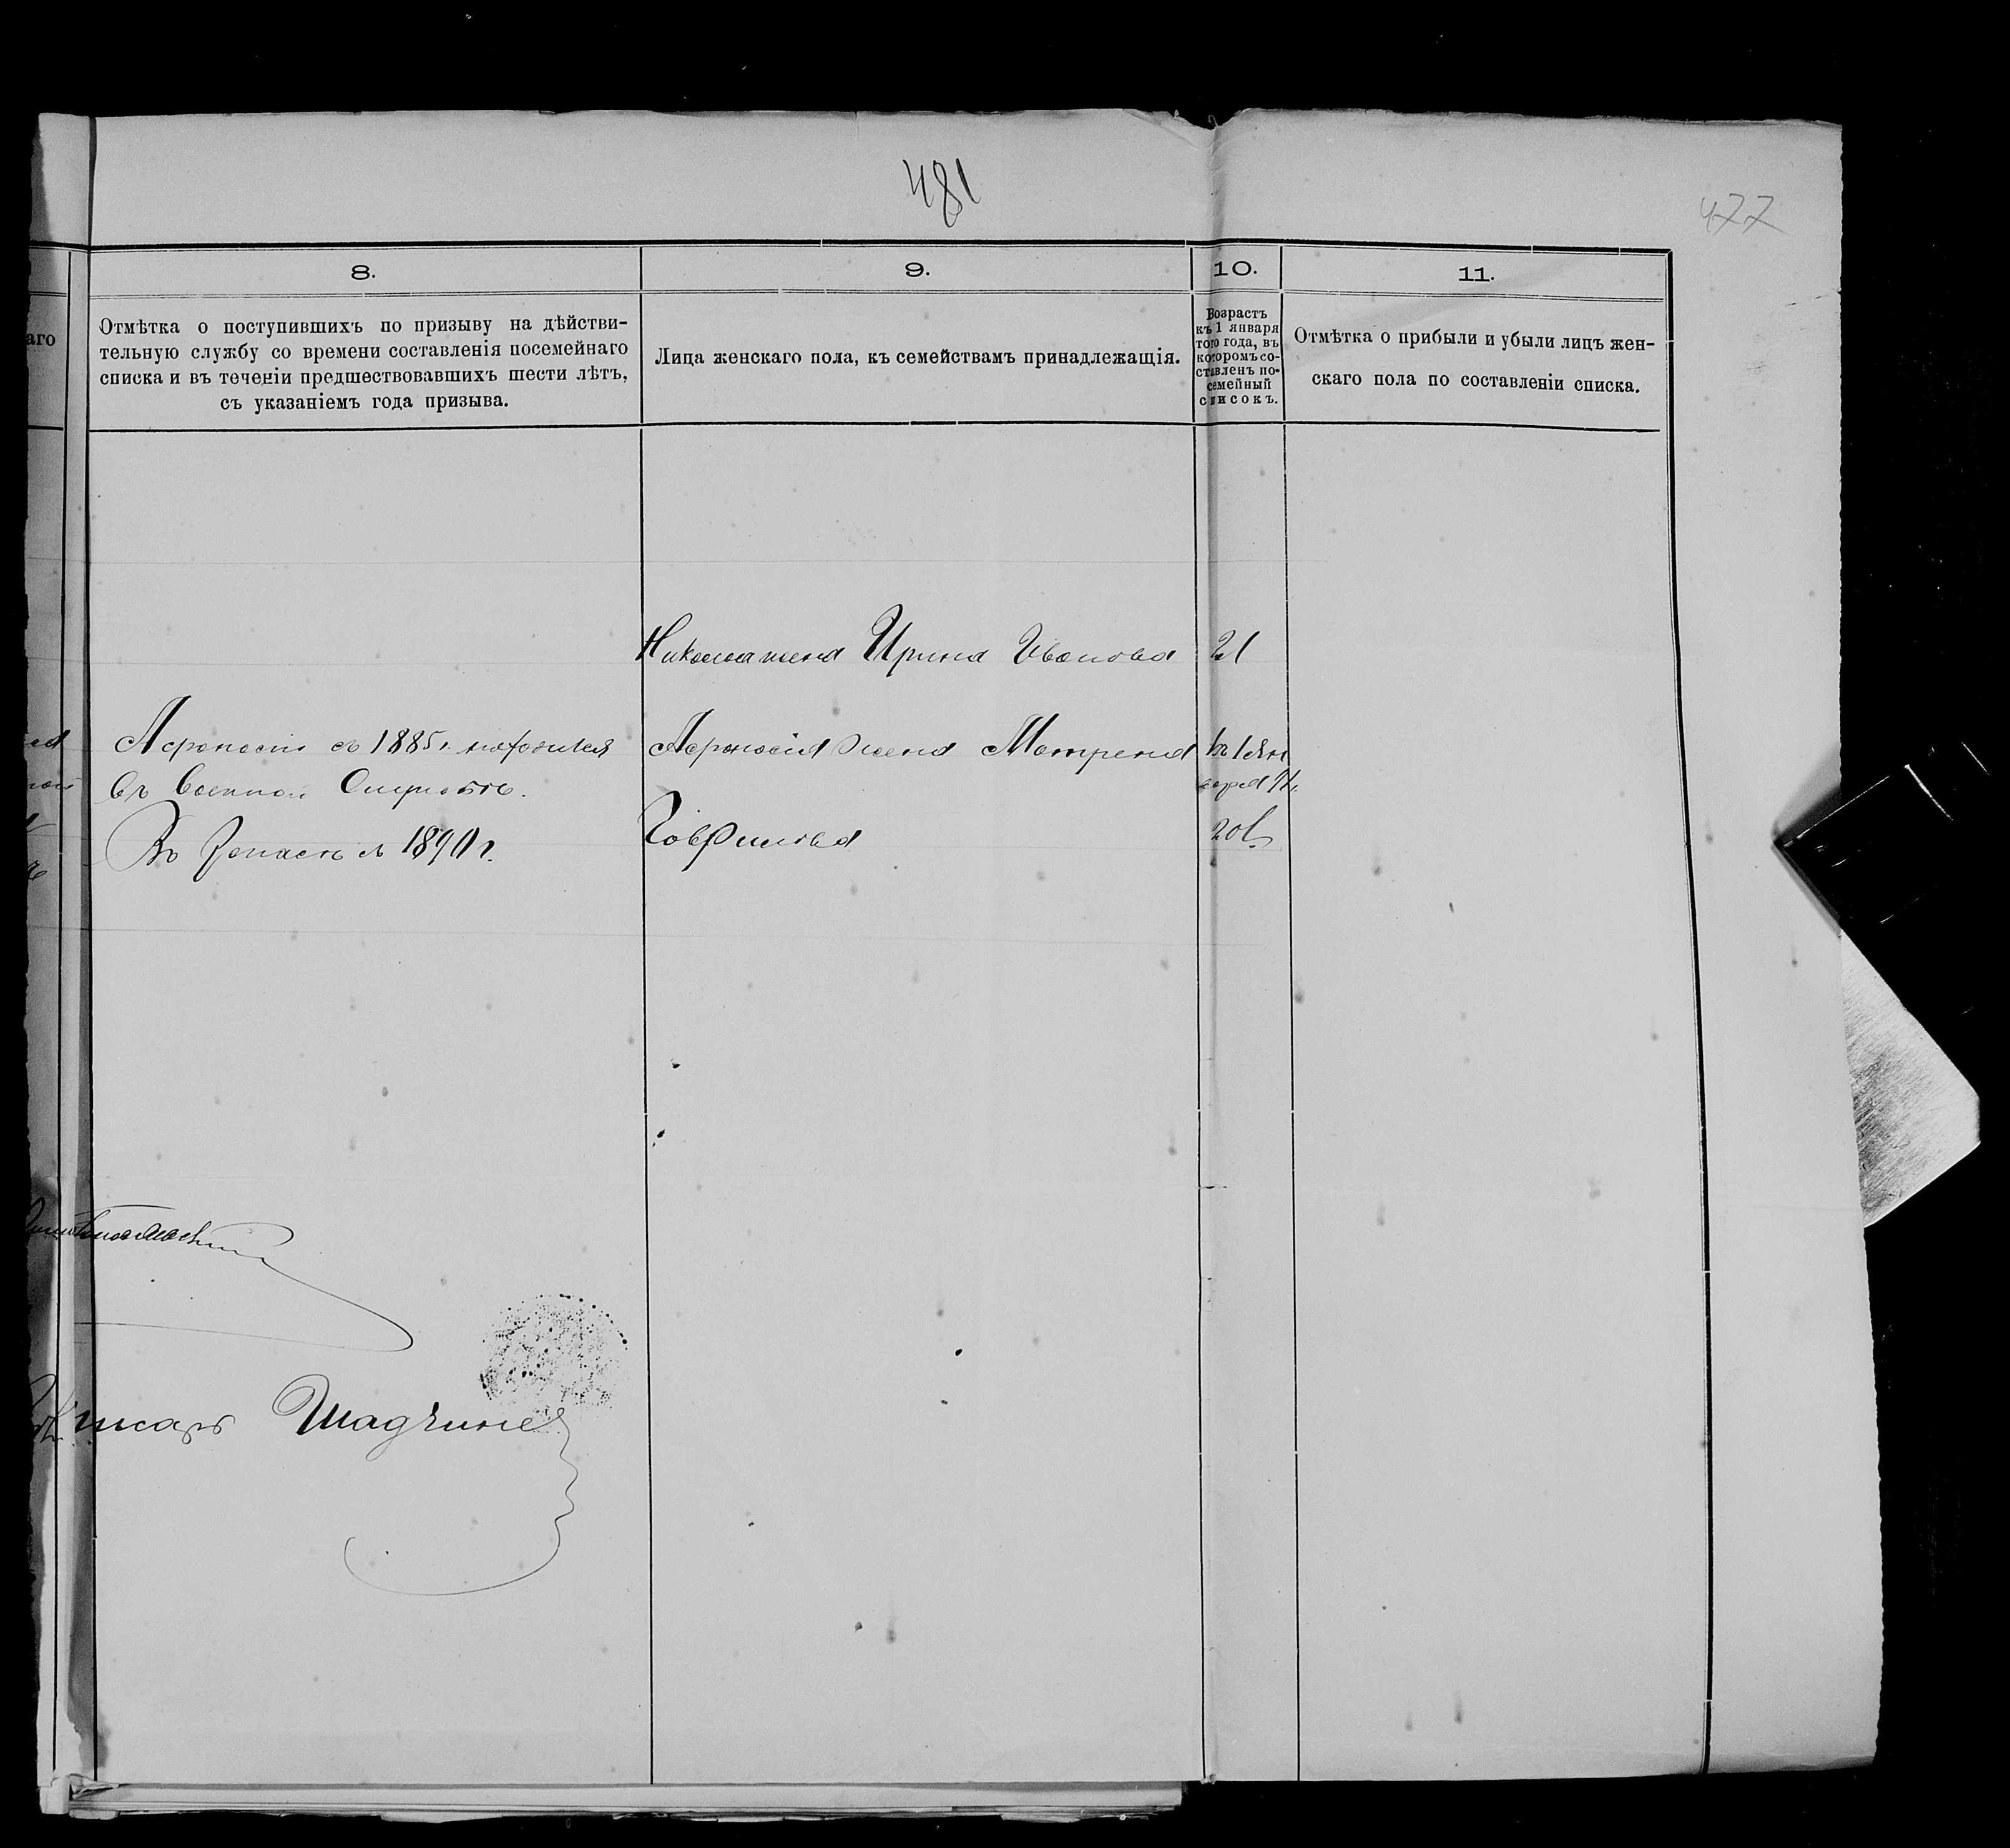 481
477
8.
9.
10.
11.
аго
Отмѣтка о поступившихъ по призыву на дѣйстви-
тельную службу со времени составленія посемейнаго
списка и въ теченіи предшествовавшихъ шести лѣтъ,
съ указаніемъ года призыва.
Лица женскаго пола, къ семействамъ принадлежащія.
Возрастъ
къ 1 января
того года, въ
которомъ со-
ставленъ по-
семейный
списокъ.
Отмѣтка о прибыли и убыли лицъ жен-
скаго пола по составленіи списка.
Николая жена Ирина Иванова 21
Афонасій съ 1885 г. находится
въ военной Службѣ.
Въ Запасѣ съ 1890 г.
Афонасія жена Матрена
Гаврилова
къ 1 Ян
варя
20 л.
Писарь Шадчинъ